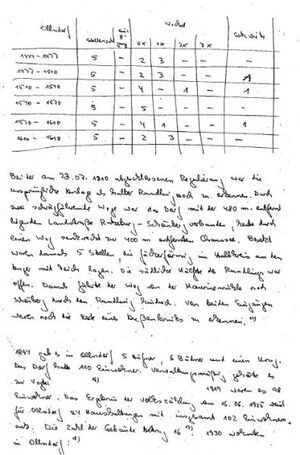 Ollendorf
0x 1x 2x 3x
1444-1477 5 - 2 3 - - -
1477-1510 5 - 2 3 - - 1
1510-1540 5 - 4 - 1 - 1
1540-1570 5 - 5 - - - -
1570-1600 5 - 4 1 - - 1
1600-1618 5 - 2 3 - - -
Bei der am 23.07.1810 abgeschlossenen Regulierung war die
ursprüngliche Anlage als halber Rundling noch zu erkennen. Durch
zwei Wege war das Dorf mit der 480 m entfernt
liegenden Landstraße Ratzeburg - Schönberg verbunden, durch
einen Weg mit der 400 m entfernten Chaussee. Besetzt
waren damals 5 Stellen, die fächerförmig im Halbkreis um den
Anger mit Teich lagen. Die südliche Hälfte des Rundlings war
offen. Damals führte der Weg von der Hammermühle nach
durch den Rundling hindurch. Von beiden Eingängen
waren noch die Reste eines zu erkennen.
1894 gab es in Ollendorf 5 Hüfner, 6 Büdner und einen Krug.
Das Dorf hatte 110 Einwohner. Verwaltungsmäßig gehörte es
zur Vogtei 1919 waren es 98
Einwohner. Das Ergebnis der Volkszählung vom 16.06.1925 weist
für Ollendorf 24 Haushaltungen mit insgesamt 102 Einwohnern
aus. Die Zahl der Gebäude betrug 16. 1930 wohnten
in Ollendorf: